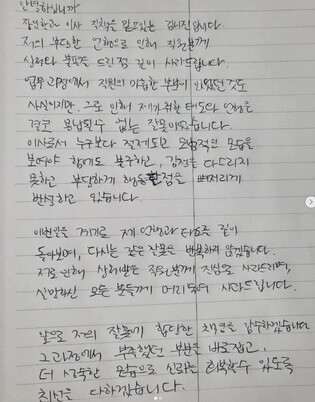 안녕하십니까
이사 직책을 맡고있는 입니다
저의 부당한 언행으로 인해 직원분께
상처와 불편을 드린 점 깊이 사과드립니다.
업무 과정에서 직원의 미흡한 부분이 있었던 것도
사실이지만, 그로 인해 제가 취한 태도와 언행은
결코 용납될 수 없는 잘못이었습니다.
이사로서 누구보다 절제되고 모범적인 모습을
보여야 함에도 불구하고, 감정을 다스리지
못하고 부당하게 행동한점을 뼈저리게
반성하고 있습니다.
이번일을 계기로 제 언행과 태도를 깊이
돌아보며, 다시는 같은 잘못을 반복하지 않겠습니다.
저로 인해 상처받은 직원분께 진심으로 사과드리며,
실망하신 모든 분들께 머리숙여 사과드립니다.
앞으로 저의 잘못에 합당한 책임을 감수하겠습니다
그 과정에서 부족했던 부분을 바로잡고,
더 성숙한 모습으로 신뢰를 회복할수 있도록
최선을 다하겠습니다.